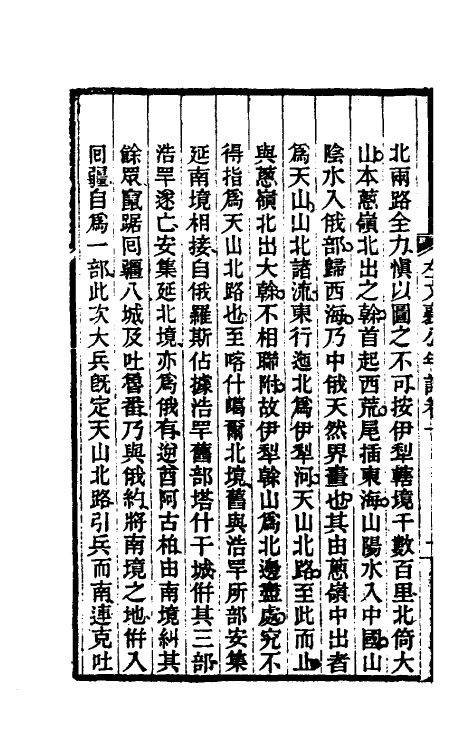 北兩路全力慎以圖之不可按伊犁轄境千數百里北倚大
山本蔥嶺北出之榦首起西荒尾插東海山陽水入中國山
陰水入俄部歸西海乃中俄天然界畫也其由蔥嶺中出者
爲天山山北諸流東行迤北爲伊犁河天山北路至此而止
與蔥嶺北出大榦不相聯附故伊犁榦山爲北邊盡處究不
得指爲天山北路也至喀什噶爾北境舊與浩罕所部安集
延南境相接自俄羅斯佔據浩罕舊部塔什干城倂其三部
浩罕遂亡安集延北境亦爲俄有逆酋阿古柏由南境糾其
餘眾竄踞囘疆八城及吐魯番乃與俄約將南境之地倂入
囘疆自爲一部此次大兵旣定天山北路引兵而南連克吐
左文襄公年譜卷